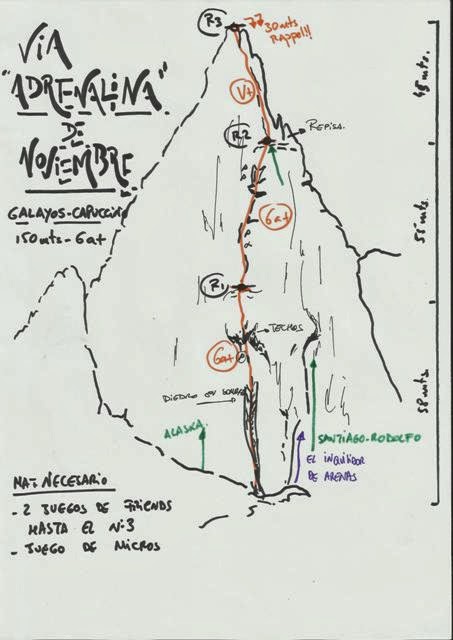 VÍA
"ADRENALINA"
DE
NOVIEMBRE
GALAYOS-CAPUCHINO
150mts-6a+
R3
30mts
RAPPEL!!
V+
45 mts.
R2
REPISA.
6a+
55 mts.
R1
TECHOS
6a+
DIEDRO
58 mts.
ALASKA.
SANTIAGO-RODOLFO
EL INQUILINOR
DE ARENAS
MAT. NECESARIO
- 2 JUEGOS DE FRIENDS
HASTA EL Nº3
- JUEGO DE MICROS